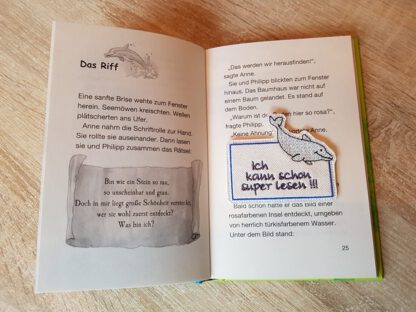 Das Riff
Eine sanfte Brise wehte zum Fenster
herein. Seemöwen kreischten. Wellen
plätscherten ans Ufer.
Anne nahm die Schriftrolle zur Hand.
Sie rollte sie auseinander. Dann lasen
sie und Philipp zusammen das Rätsel:
Bin wie ein Stein so rau,
so unscheinbar und grau.
Doch in mir liegt große Schönheit versteckt,
wer sie wohl zuerst entdeckt?
Was bin ich?
„Das werden wir herausfinden!“,
sagte Anne.
Sie und Philipp blickten zum Fenster
hinaus. Das Baumhaus war nicht auf
einem Baum gelandet. Es stand auf
dem Boden.
„Warum ist der hier so rosa?“,
fragte Philipp.
„Keine Ahnung Anne.
Ich
kann schon
super lesen !!!
Bald schon hatte er das Bild einer
rosafarbenen Insel entdeckt, umgeben
von herrlich türkisfarbenem Wasser.
Unter dem Bild stand:
25